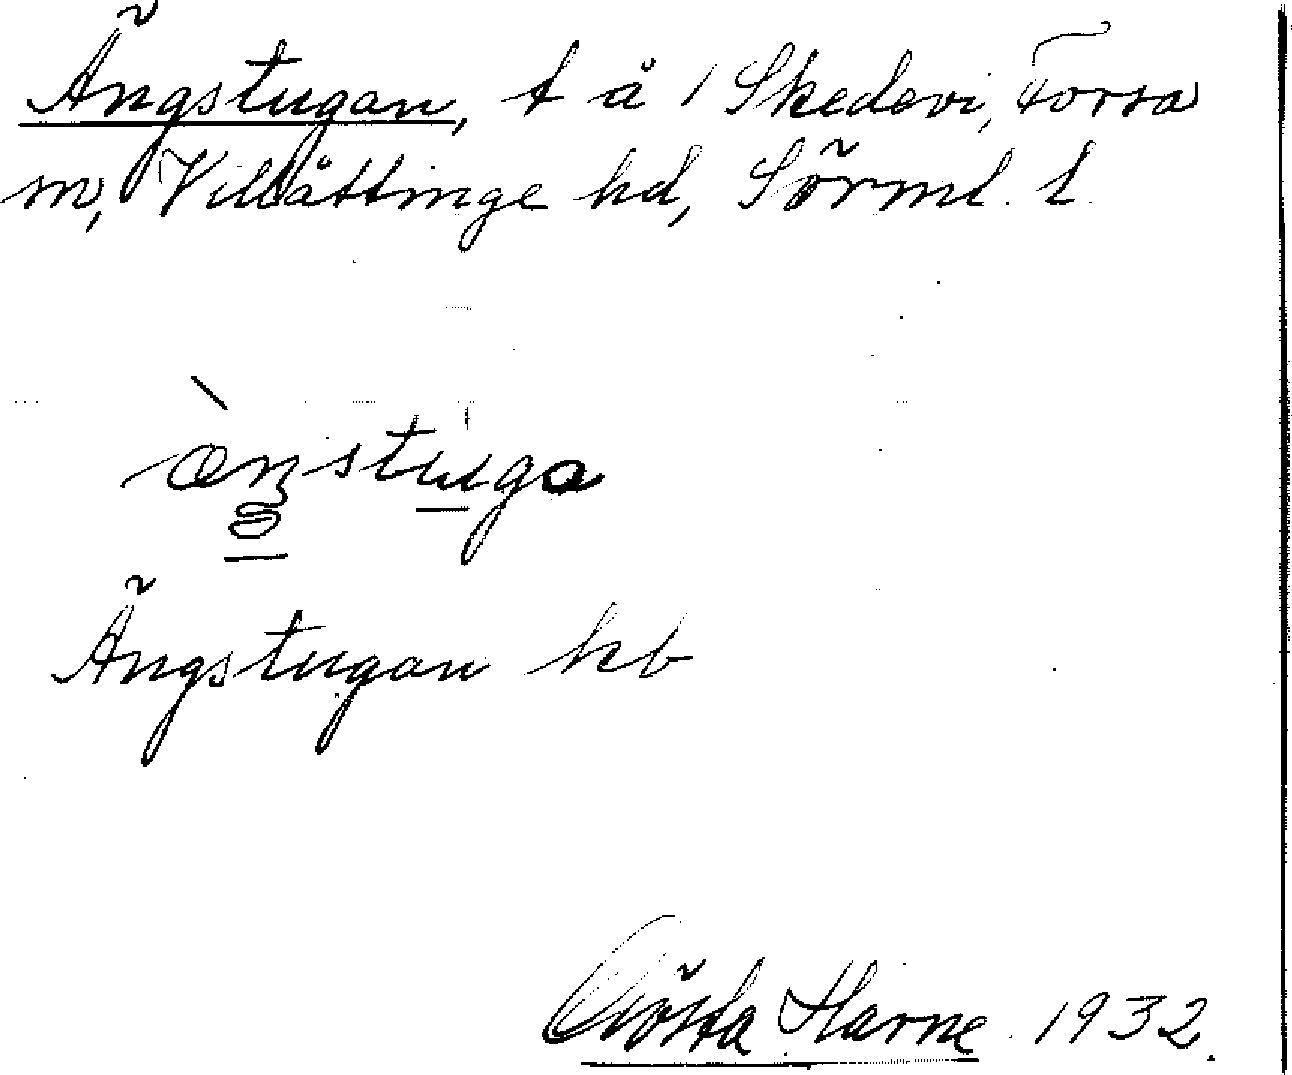 Ängstugan, t å / Skedevi, Forsa
sn, Villåttinge hd, Sörml. l.
ängstuga
Ängstugan kb
Gösta Harne 1932.